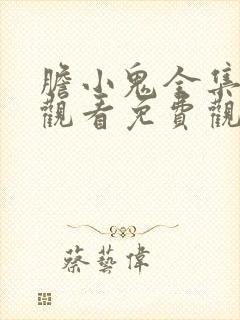 膽小鬼全集
觀看免費觀
蔡藝偉